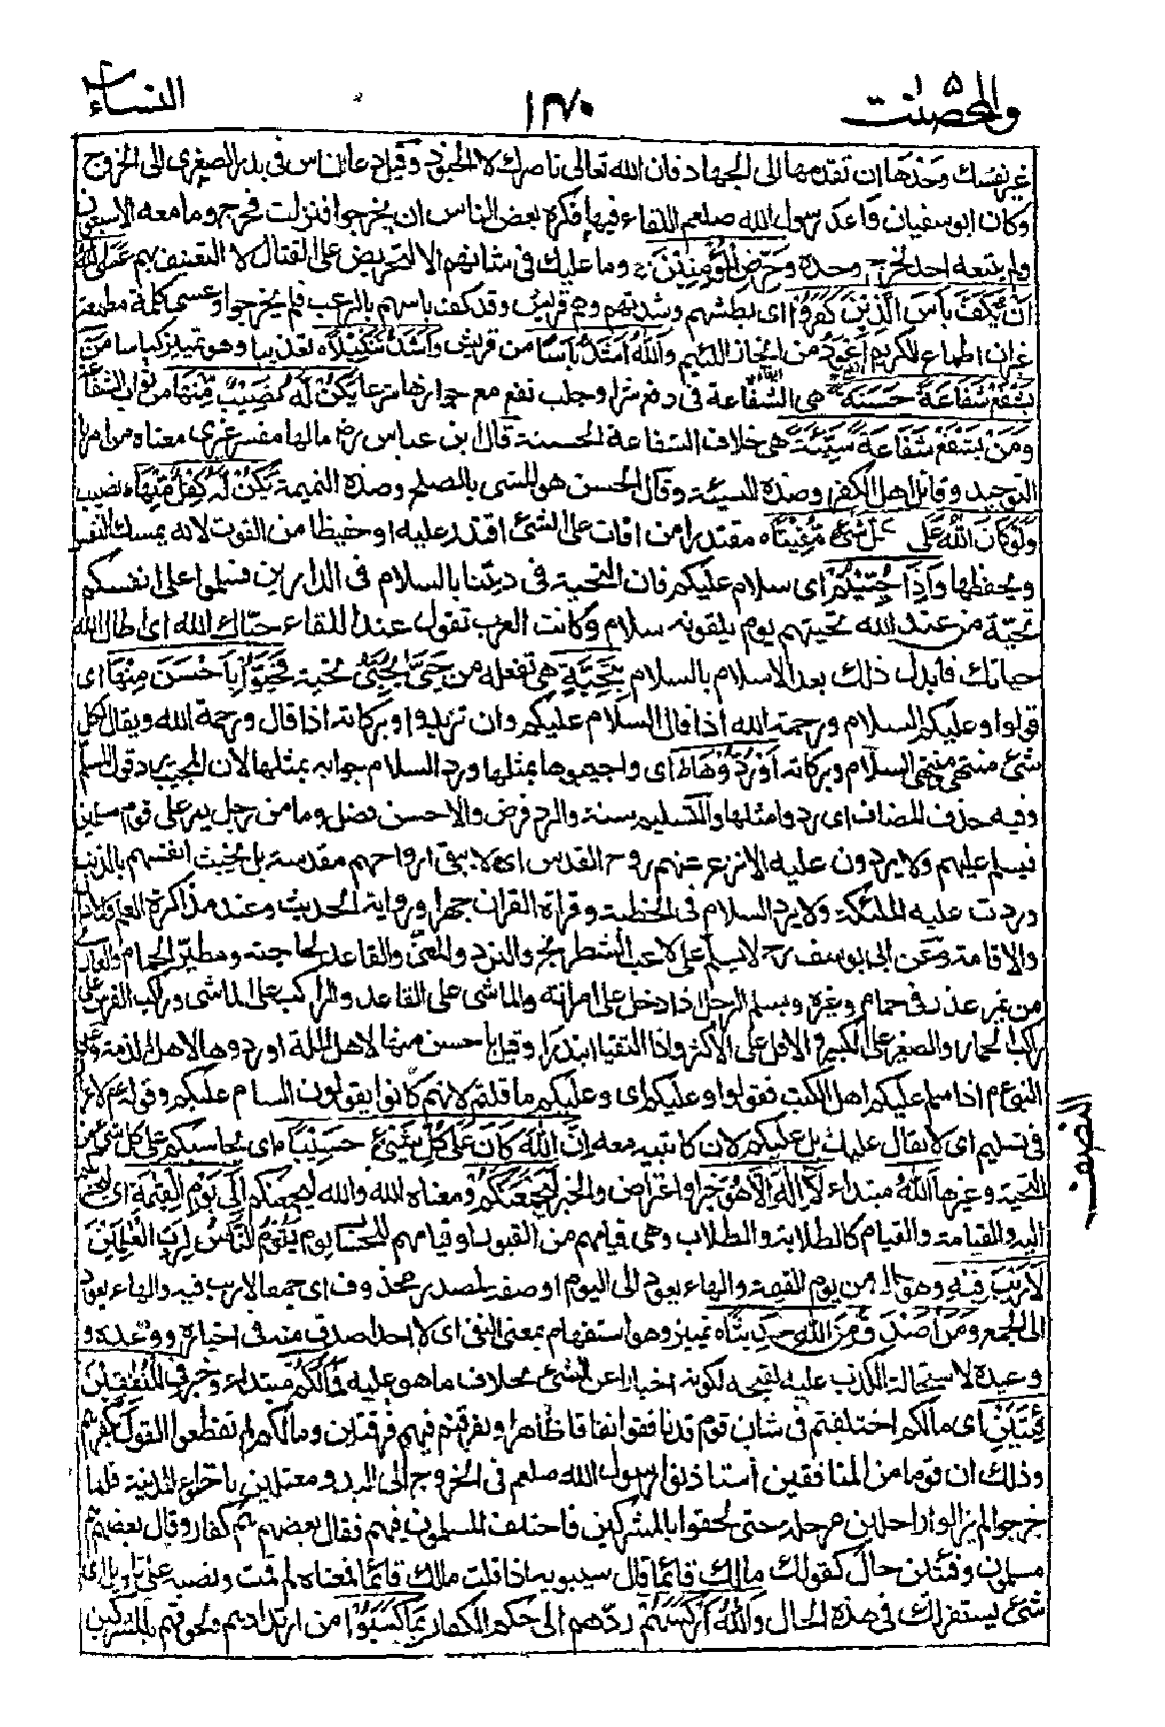 والمحصنت ٥
١٣٧٠
النساء ٤
غير نفسك وحدها ان تقدمها الى الجهاد فان الله تعالى ناصرك لا الجنود وقيل دعا الناس فى بدر الصغرى الى الخروج
وكان ابو سفيان واعد رسول الله صلعم اللقاء فيها فكره بعض الناس ان يخرجوا فنزلت فخرج وما معه الا سبعون
ولم يتبعه احد لخرج وحده وَحَرِّضِ الْمُؤْمِنِيْنَ ج وما عليك فى شانهم الا التحريض على القتال لا التعنيف بهم عَسَى اللهُ
اَنْ يَّكُفَّ بَأْسَ الَّذِيْنَ كَفَرُوْا اى بطشهم وشدتهم وهم قريش وقد كف باسهم بالرعب فلم يخرجوا وعسى كلمة مطمعة
غير ان اطماع الكريم اعود من انجاز اللئيم وَاللهُ اَشَدُّ بَأْسًا من قريش وَاَشَدُّ تَنْكِيْلًا ه تعذيبا وهو تمييز كباسا مَنْ
يَّشْفَعْ شَفَاعَةً حَسَنَةً هى الشفاعة فى دفع شر او جلب نفع مع جوازها شرعا يَكُنْ لَّهٗ نَصِيْبٌ مِّنْهَا من ثواب الشفاعة
وَمَنْ يَّشْفَعْ شَفَاعَةً سَيِّئَةً هى خلاف الشفاعة الحسنة قال ابن عباس رض ما لها مفسر غيرى معناه من امر
التوحيد وقاتل اهل الكفر وضده السيئة وقال الحسن هو المشى بالصلح وضده النميمة يَكُنْ لَّهٗ كِفْلٌ مِّنْهَا ط نصيب
وَكَانَ اللهُ عَلٰى كُلِّ شَىْءٍ مُّقِيْتًا ه مقتدرا من اقات على الشئ اقتدر عليه او حفيظا من القوت لانه يمسك النفس
ويحفظها وَاِذَا حُيِّيْتُمْ اى سلام عليكم فان التحية فى ديننا بالسلام فى الدارين فسلموا على انفسكم
تحية من عند الله تحيتهم يوم يلقونه سلام وكانت العرب تقول عند اللقاء حياك الله اى اطال الله
حياتك فابدل ذلك بعد الاسلام بالسلام بِتَحِيَّةٍ هى تفعلة من حيى يحيى تحية فَحَيُّوْا بِاَحْسَنَ مِنْهَا اى
قولوا وعليكم السلام ورحمة الله اذا قال السلام عليكم وان تزيدوا وبركاته اذا قال ورحمة الله ويقال لكل
شئ منتهى ومنتهى السلام وبركاته اَوْ رُدُّوْهَا ط اى واجيبوها بمثلها ورد السلام جوابه بمثلها لان المجيب يرد قول المسلم
وفيه حذف المضاف اى ردوا مثلها والتسليم سنة والرد فرض والاحسن فضل وما من رجل يمر على قوم مسلمين
فيسلم عليهم ولا يردون عليه الا نزع عنهم روح القدس اى لا يبقى ارواحهم مقدسة بل يخبث انفسهم بالذنب
وردت عليه الملئكة ولا يرد السلام فى الخطبة وقراة القران جهرا ورواية الحديث وعند مذاكرة العلم والاذان
والاقامة وعن ابى يوسف رح لا يسلم على لاعب الشطرنج والنرد والمغنى والقاعد لحاجته ومطير الحمام والعارى
من غير عذر فى حمام وغيره ويسلم الرجل اذا دخل على امراته والماشى على القاعد والراكب على الماشى وراكب الفرس على
راكب الحمار والصغير على الكبير والاقل على الاكثر واذا التقيا ابتدرا وقيل باحسن منها لاهل الملة او ردوها لاهل الذمة وعن
النبى م اذا سلم عليكم اهل الكتب فقولوا وعليكم اى وعليكم ما قلتم لانهم كانوا يقولون السام عليكم وقوله م لا غرار
فى تسليم اى لا يقال عليك بل عليكم لان كاتبيه معه اِنَّ اللهَ كَانَ عَلٰى كُلِّ شَىْءٍ حَسِيْبًا ه اى يحاسبكم على كل شئ من
التحية وغيرها اَللهُ مبتداء لَآ اِلٰهَ اِلَّا هُوَ خبر او اعتراض والخبر لَيَجْمَعَنَّكُمْ ومعناه الله والله ليجمعنكم اِلٰى يَوْمِ الْقِيٰمَةِ اى ليحشرنكم
اليه والقيامة والقيام كالطلابة والطلاب وهى قيامهم من القبور او قيامهم للحساب يوم يَقُوْمُ النَّاسُ لِرَبِّ الْعٰلَمِيْنَ
لَا رَيْبَ فِيْهِ وهو حال من يوم القيمة والهاء يعود الى اليوم او صفة لمصدر محذوف اى جمعا لا ريب فيه والهاء يعود
الى الجمع وَمَنْ اَصْدَقُ مِنَ اللهِ حَدِيْثًا ه تمييز وهو استفهام بمعنى النفى اى لا احد اصدق منه فى اخباره ووعده و
وعيده لاستحالة الكذب عليه لقبحه لكونه اخبارا عن الشئ بخلاف ما هو عليه فَمَا لَكُمْ مبتداء وخبر فِى الْمُنٰفِقِيْنَ
فِئَتَيْنِ اى مالكم اختلفتم فى شان قوم قد نافقوا نفاقا ظاهرا وتفرقتم فيهم فرقتين ومالكم لم تقطعوا القول بكفرهم
وذلك ان قوما من المنافقين استاذنوا رسول الله صلعم فى الخروج الى البدو معتلين باجتواء المدينة فلما
خرجوا لم يزالوا راحلين مرحلة مرحلة حتى لحقوا بالمشركين فاختلف المسلمون فيهم فقال بعضهم هم كفار وقال بعضهم هم
مسلمون وفئتين حال كقولك مالك قائما قال سيبويه اذا قلت مالك قائما فمعناه لم قمت ونصبه على تاويل اى
شئ يستقر لك فى هذه الحال وَاللهُ اَرْكَسَهُمْ ردهم الى حكم الكفار بِمَا كَسَبُوْا من ارتدادهم ولحوقهم بالمشركين
النصف